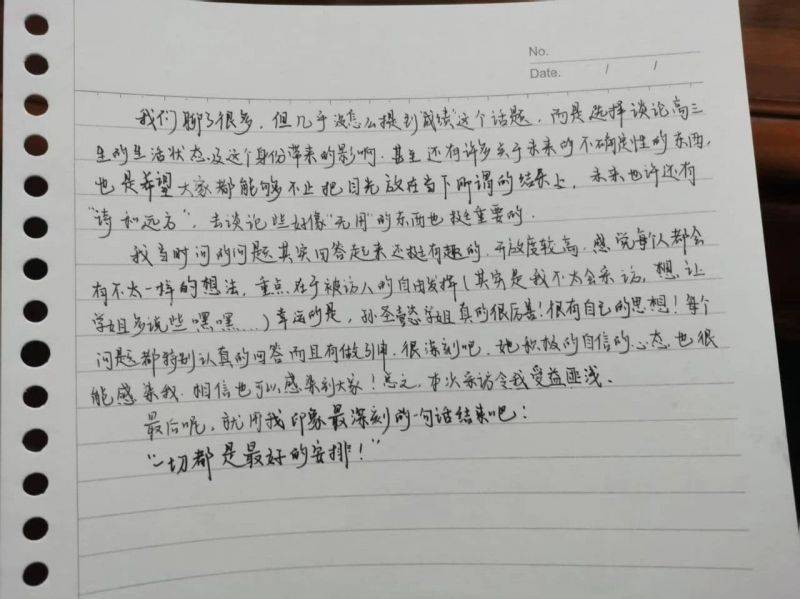 No.
Date. / /
我们聊了很多，但几乎没怎么提到"成绩"这个话题，而是选择谈论高三
生的生活状态及这个身份带来的影响，甚至还有许多关于未来的不确定性的东西，
也是希望大家都能够不止把目光放在当下所谓的结果上，未来也许还有
"诗和远方"，去谈论些好像"无用"的东西也挺重要的。
我当时问的问题其实回答起来还挺有趣的，开放度较高，感觉每个人都会
有不太一样的想法，重点在于被访人的自由发挥（其实是我不太会采访，想让
学姐多说些嘿嘿……）幸运的是，孙圣懿学姐真的很厉害！很有自己的思想！每个
问题都特别认真的回答而且有做引申，很深刻吧，她积极的自信的心态也很
能感染我，相信也可以感染到大家！总之，本次采访令我受益匪浅。
最后呢，就用我印象最深刻的一句话结束吧：
"一切都是最好的安排！"